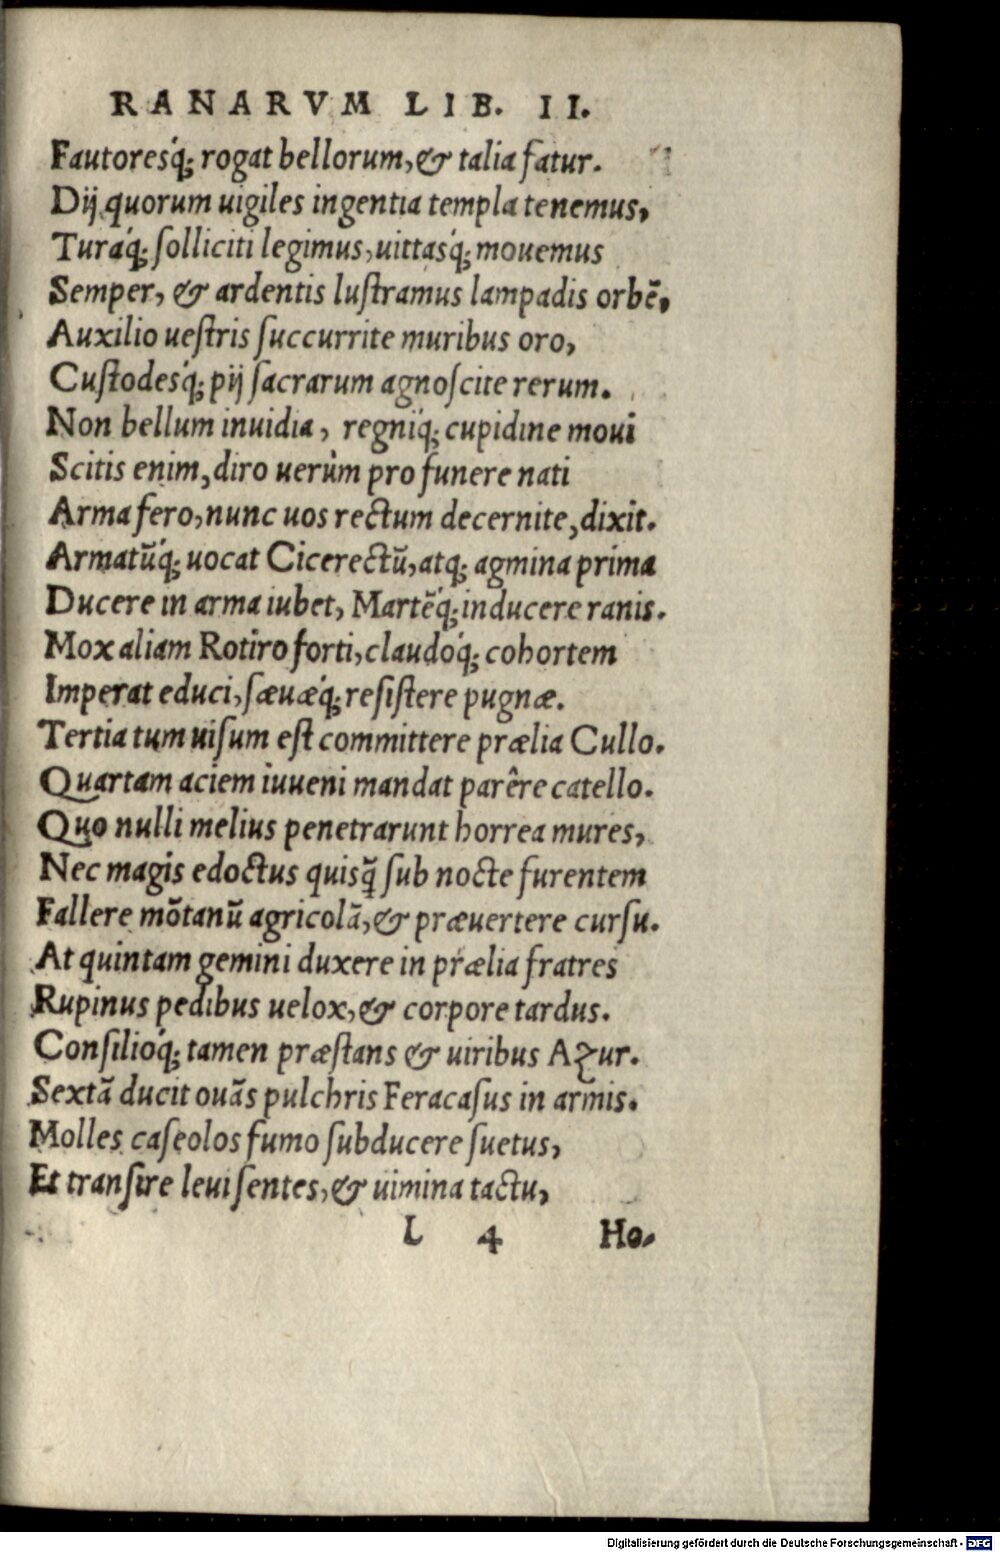 RANARVM LIB. II.
Fautoresq́; rogat bellorum, & talia fatur.
Dij quorum uigiles ingentia templa tenemus,
Turaq́; ſolliciti legimus, uittasq́; mouemus
Semper, & ardentis luſtramus lampadis orbē,
Auxilio ueſtris ſuccurrite muribus oro,
Cuſtodesq́; pij ſacrarum agnoſcite rerum.
Non bellum inuidia, regniq́; cupidine moui
Scitis enim, diro uerùm pro funere nati
Arma fero, nunc uos rectum decernite, dixit.
Armatūq́; uocat Cicerectū, atq; agmina prima
Ducere in arma iubet, Martēq́; inducere ranis.
Mox aliam Rotiro forti, claudoq́; cohortem
Imperat educi, ſæuæq́; reſiſtere pugnæ.
Tertia tum uiſum eſt committere prælia Cullo.
Quartam aciem iuueni mandat parêre catello.
Quo nulli melius penetrarunt horrea mures,
Nec magis edoctus quisq̃ ſub nocte furentem
Fallere mōtanū agricolā, & præuertere curſu.
At quintam gemini duxere in prælia fratres
Rupinus pedibus uelox, & corpore tardus.
Conſilioq́; tamen præſtans & uiribus Azur.
Sextā ducit ouās pulchris Feracaſus in armis.
Molles caſeolos fumo ſubducere ſuetus,
Et tranſire leui ſentes, & uimina tactu,
L 4 Ho-
Digitalisierung gefördert durch die Deutsche Forschungsgemeinschaft - DFG